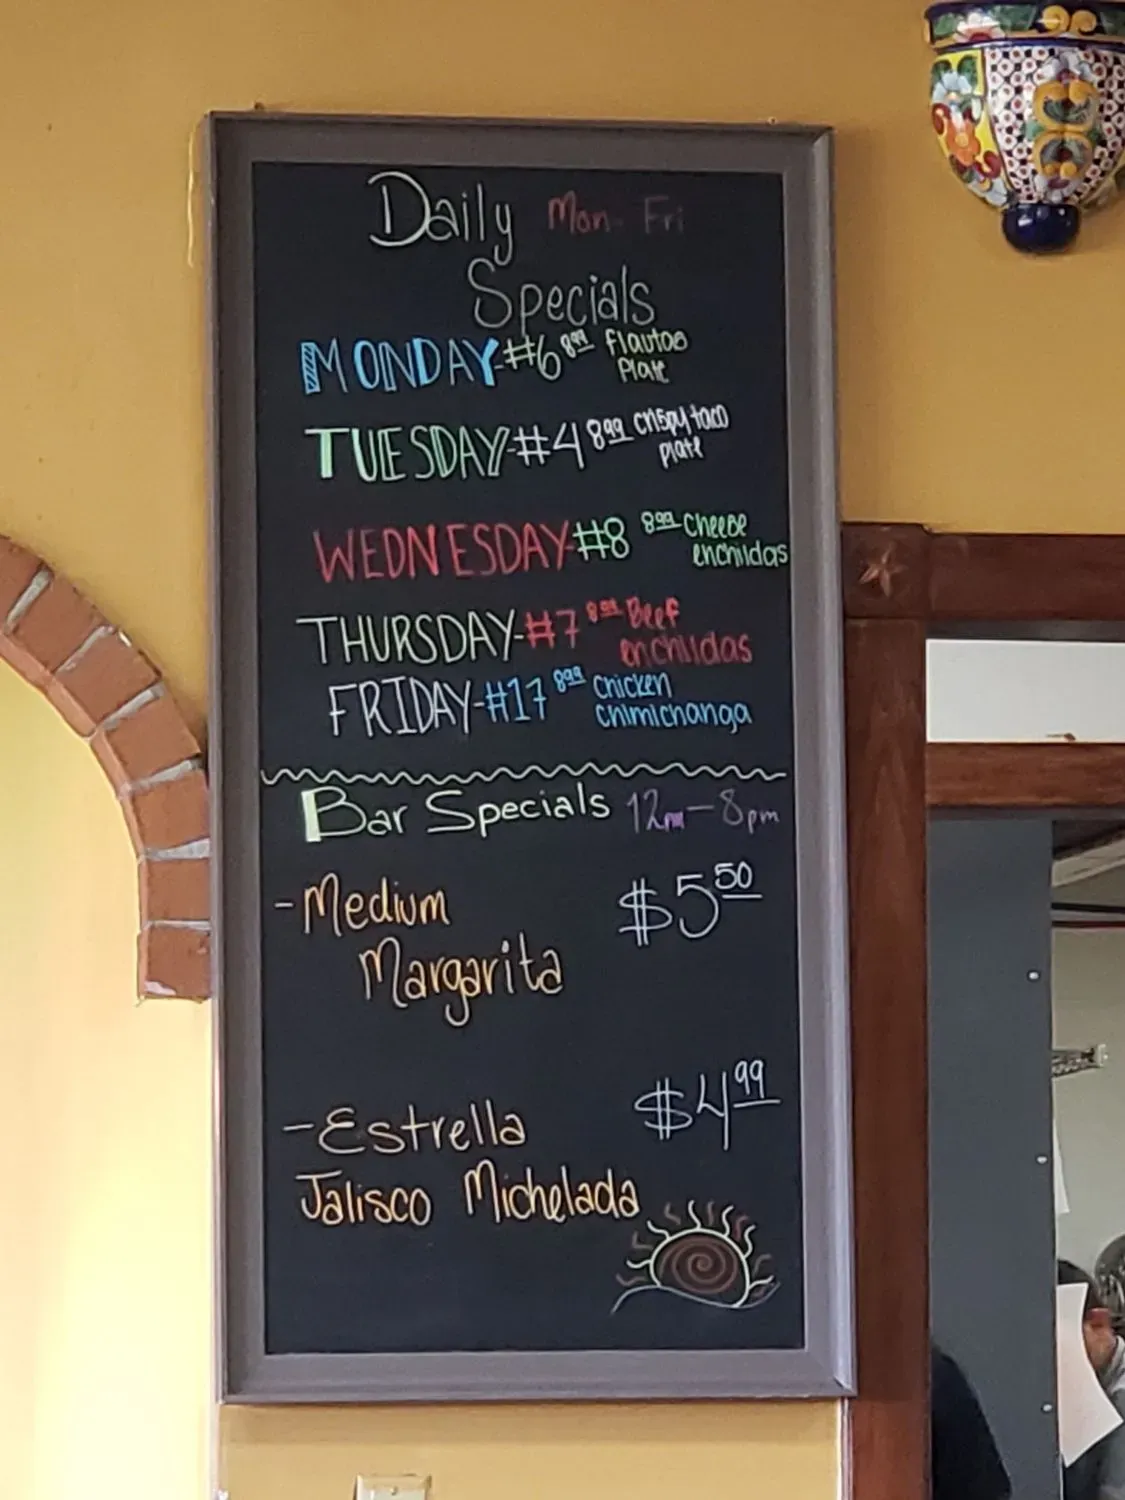 Daily Mon - Fri
Specials
MONDAY-#6 8.99 flautas
Plate
TUESDAY-#4 8.99 crispy taco
plate
WEDNESDAY-#8 8.99 Cheese
enchildas
THURSDAY-#7 8.99 Beef
enchildas
FRIDAY-#17 8.99 chicken
chimichanga
Bar Specials 12pm-8pm
-Medium $5.50
Margarita
-Estrella $4.99
Jalisco Michelada